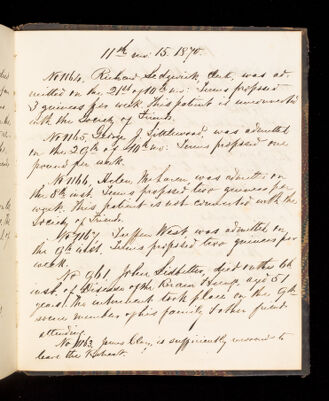 11th mo: 15. 1870.
No 1164, Richard Sedgwick, was ad-
mitted on the 21st of 10th mo: Terms proposed
3 guineas per week. This patient is unconnected
with the Society of Friends.
No 1165, George J. Littlewood, was admitted
on the 29th of 10th mo: Terms proposed one
pound per week.
No 1166, Helen was admitted on
the 8th inst. Terms proposed two guineas per
week. This patient is not connected with the
Society of Friends.
No 1167. Tuffen West was admitted on
the 9th inst. Terms proposed two guineas per
week.
No 961 John died on the 6th
inst. of Disease of the Brain & aged 57
years, the interment took place on the 9th
some members of his family & other friends
attending.
No 1163, James is sufficiently recovered to
leave the Retreat.